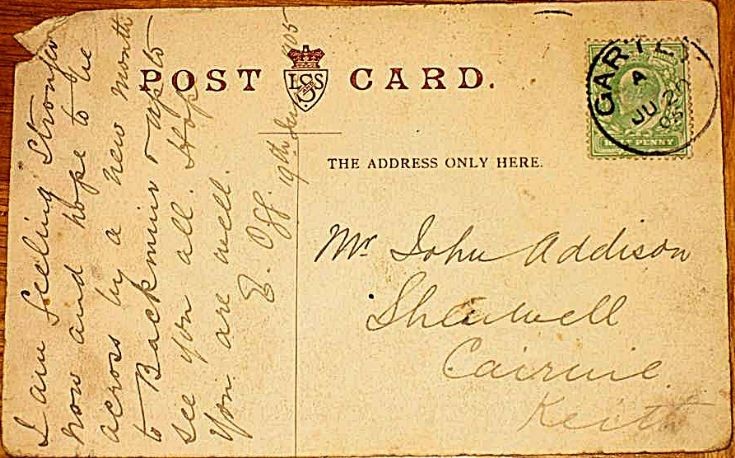 POST CARD.
LSS
I am feeling Stronger
now and hope to be
across by a new month
to Backmuir & up to
see you all. Hope
you are well.
19th June 1905
THE ADDRESS ONLY HERE.
GARTLY
A
JU 20
05
HALF PENNY
Mr John Addison
Cairnie
Keith